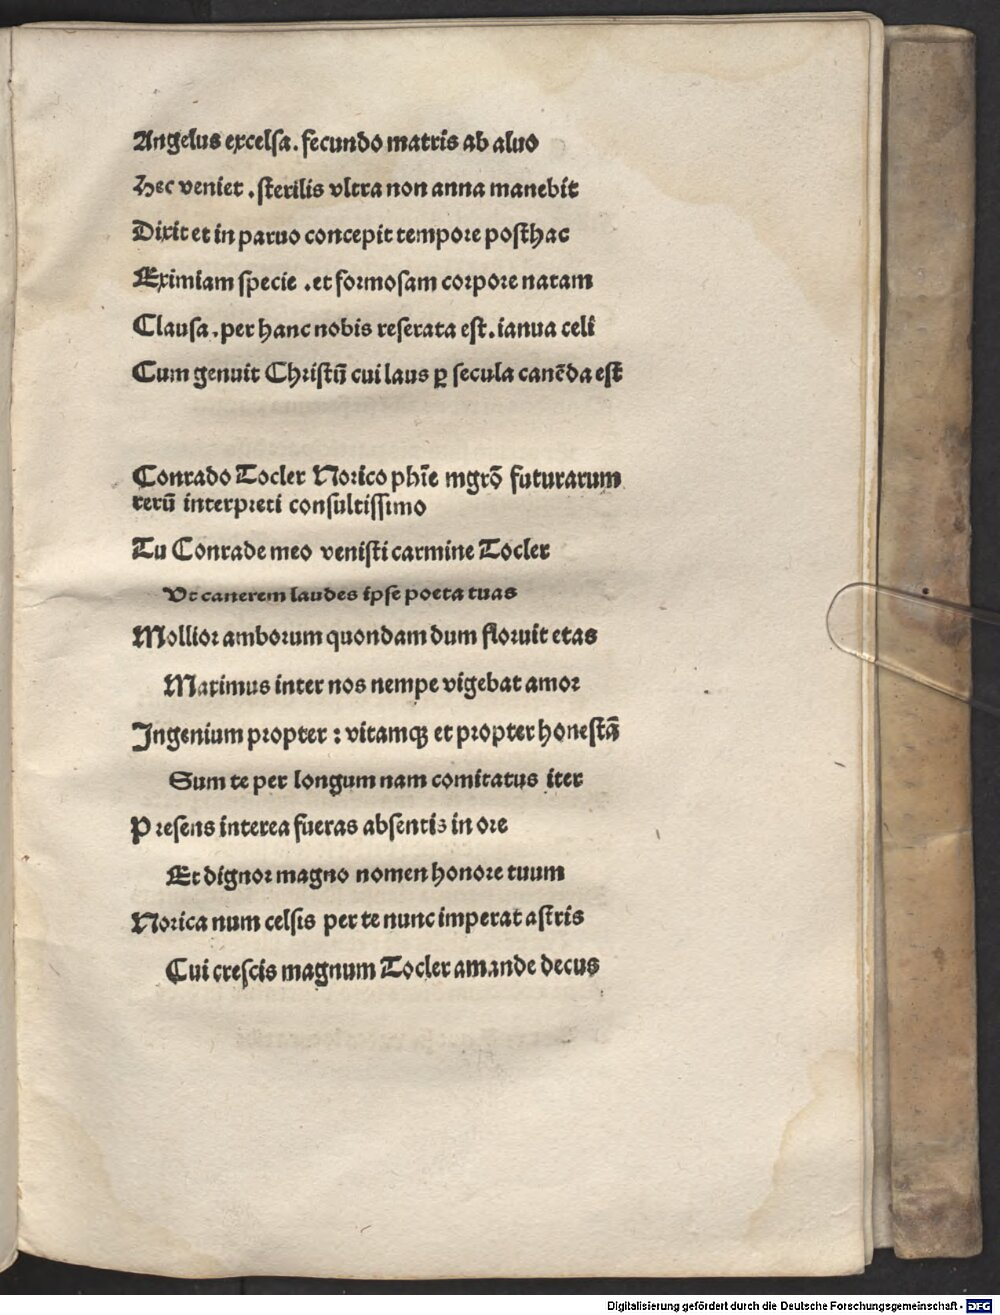 Angelus excelsa. fecundo matris ab aluo
Hec veniet . sterilis vltra non anna manebit
Dixit et in paruo concepit tempore posthac
Eximiam specie . et formosam corpore natam
Clausa. per hanc nobis reserata est. ianua celi
Cum genuit Christū cui laus ꝑ secula canēda est
Conrado Tocler Norico phīe mgrō futurarum
rerū interpreti consultissimo
Tu Conrade meo venisti carmine Tocler
Vt canerem laudes ipse poeta tuas
Mollior amborum quondam dum floruit etas
Maximus inter nos nempe vigebat amor
Ingenium propter : vitamqꝫ et propter honestā
Sum te per longum nam comitatus iter
Presens interea fueras absentis in ore
Et dignor magno nomen honore tuum
Norica num celsis per te nunc imperat astris
Cui crescis magnum Tocler amande decus
Digitalisierung gefördert durch die Deutsche Forschungsgemeinschaft - DFG